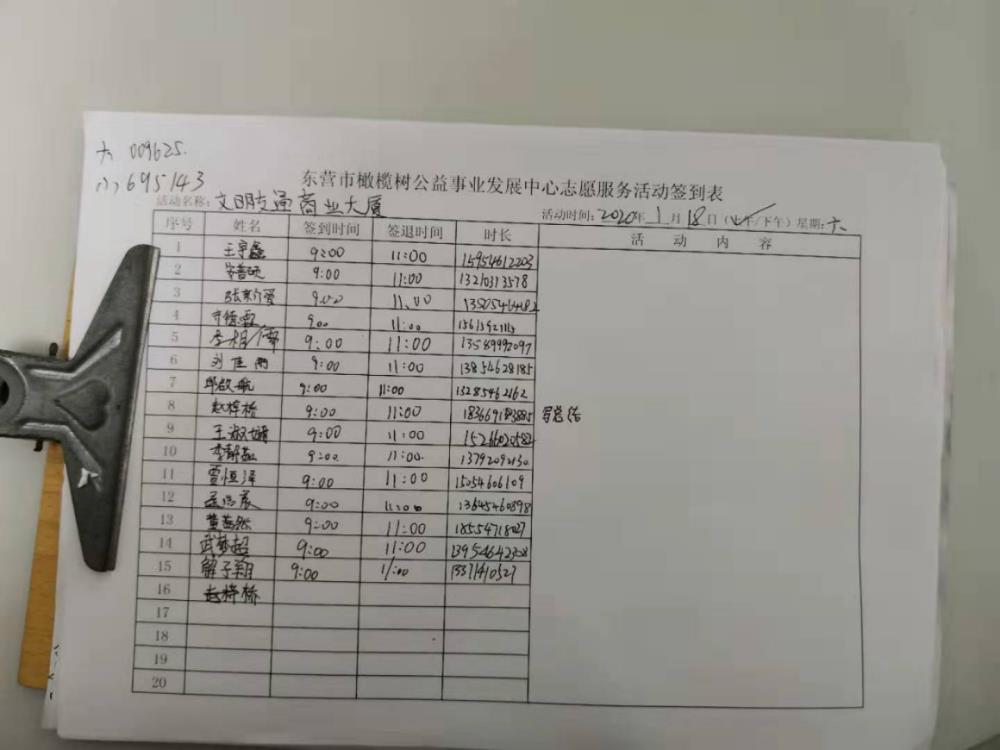 大 009625.
小 695143
东营市橄榄树公益事业发展中心志愿服务活动签到表
活动名称：文明交通商业大厦 活动时间：2020年1月18日（上午/下午）星期：六
序号 姓名 签到时间 签退时间 时长 活动内容
1 王宇鑫 9:00 11:00 15954612203
2 9:00 11:00 13210313578
3 张新爱 9:00 11:00
4 9:00 11:00
5 李相儒 9:00 11:00 13589992097
6 刘佳雨 9:00 11:00 13854628185
7 邱啟航 9:00 11:00 13285462162
8 赵梓桥 9:00 11:00 写总结
9 王淑婧 9:00 11:00 15266020582
10 李静 9:00 11:00. 13792092130
11 贾恒泽 9:00 11:00 15054606109
12 9:00 11:00 13645460898
13 黄 然 9:00 11:00 18554718027
14 武梦超 9:00 11:00
15 解子翔 9:00 11:00 13371410527
16 赵梓桥
17
18
19
20